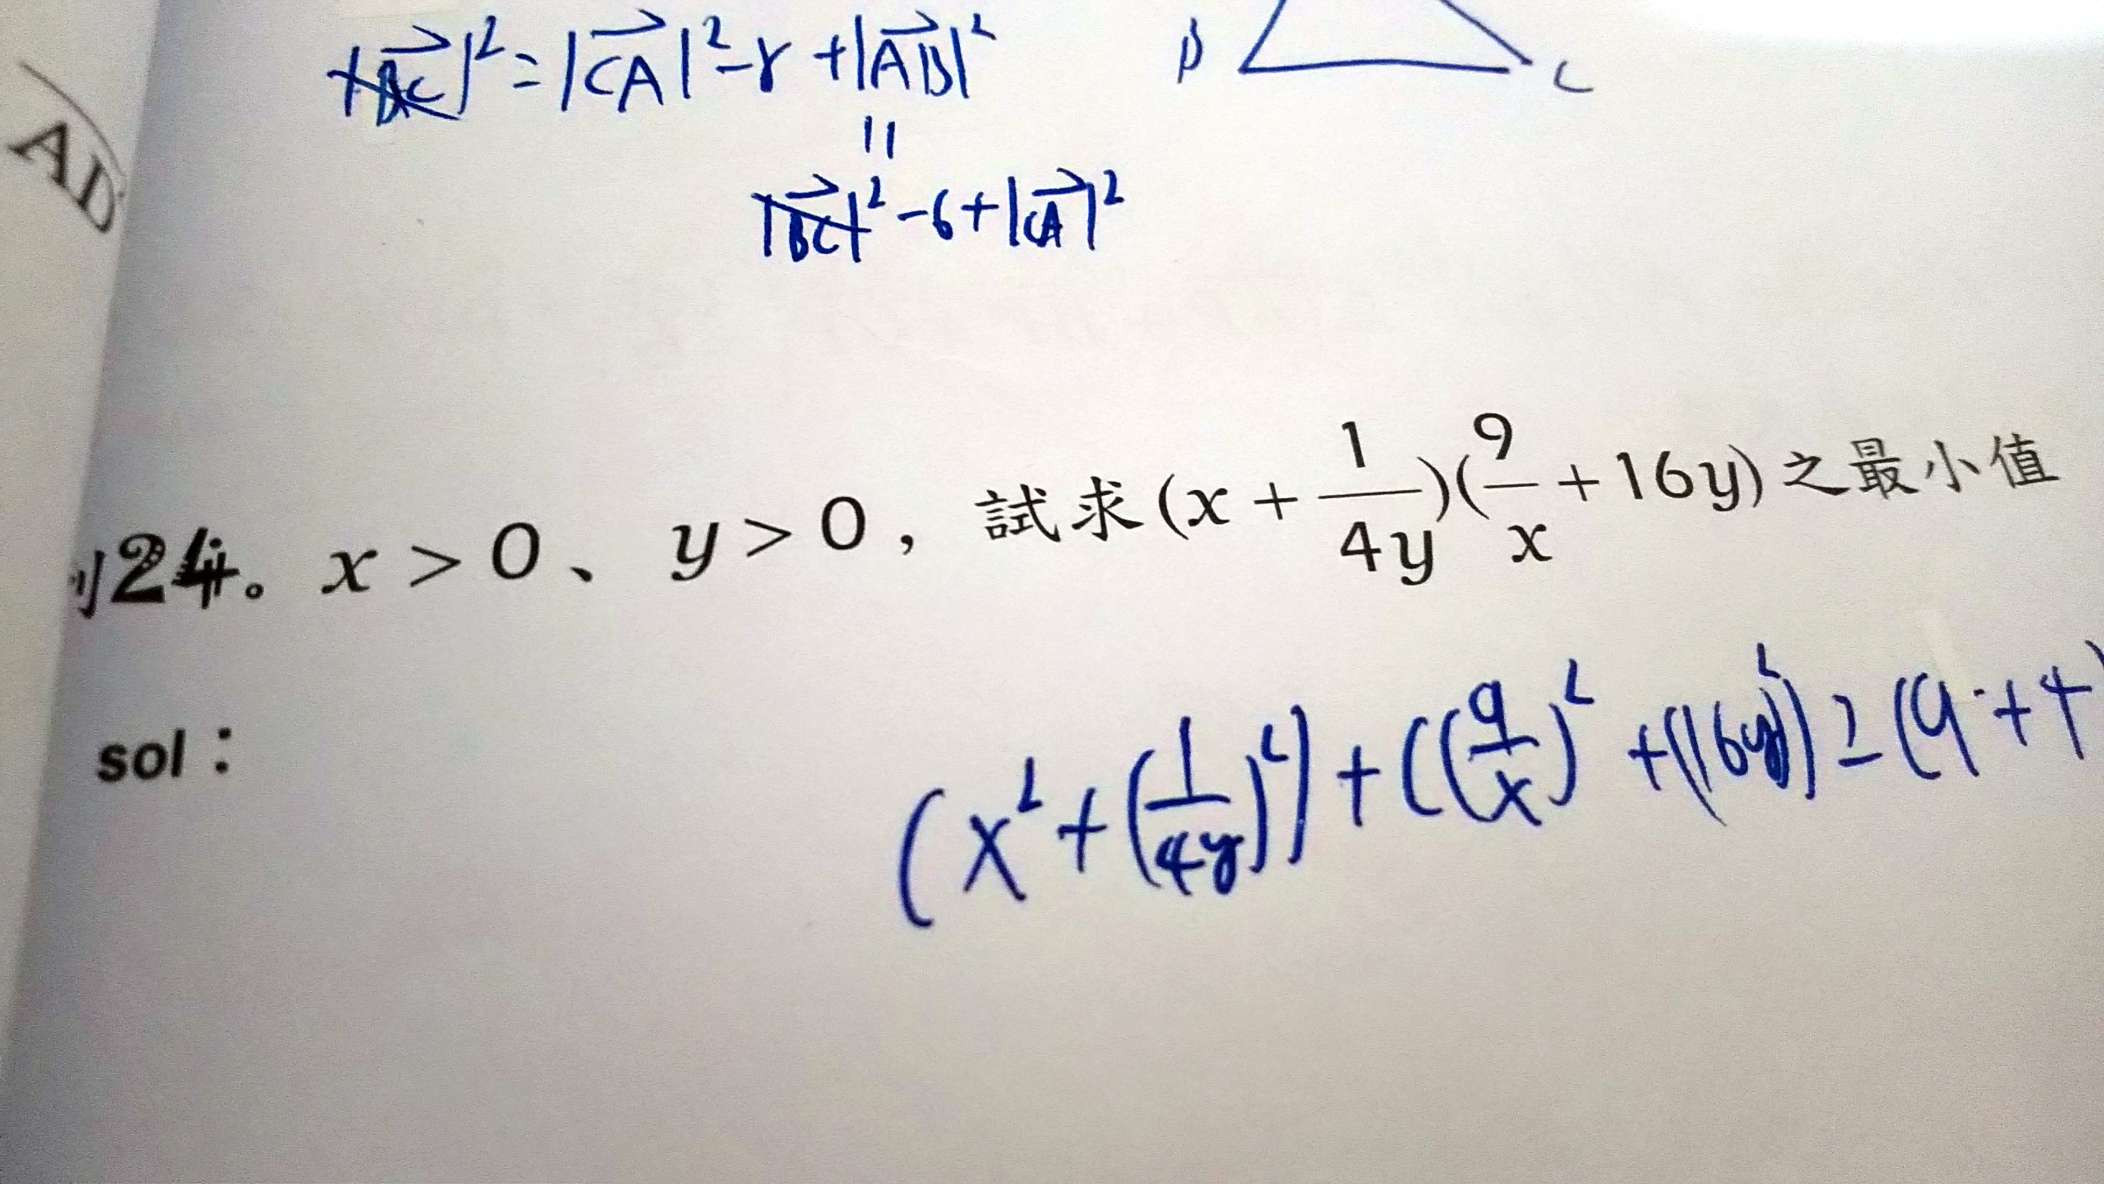 |BC|² = |CA|² - 8 + |AB|²
B C
=
|BC|² - 6 + |CA|²
AD
例24。x > 0、y > 0，試求(x + 1/4y)(9/x + 16y)之最小值
sol：
(x² + (1/4y)²) + ((9/x)² + (16y)²) ≥ (9 + 4